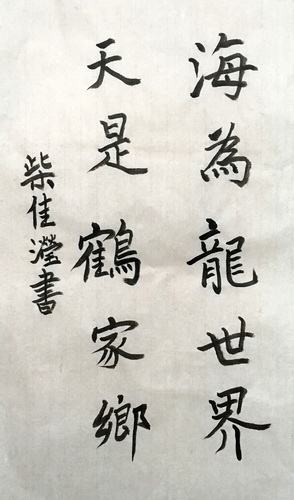 海為龍世界
天是鶴家鄉
柴佳瀅書